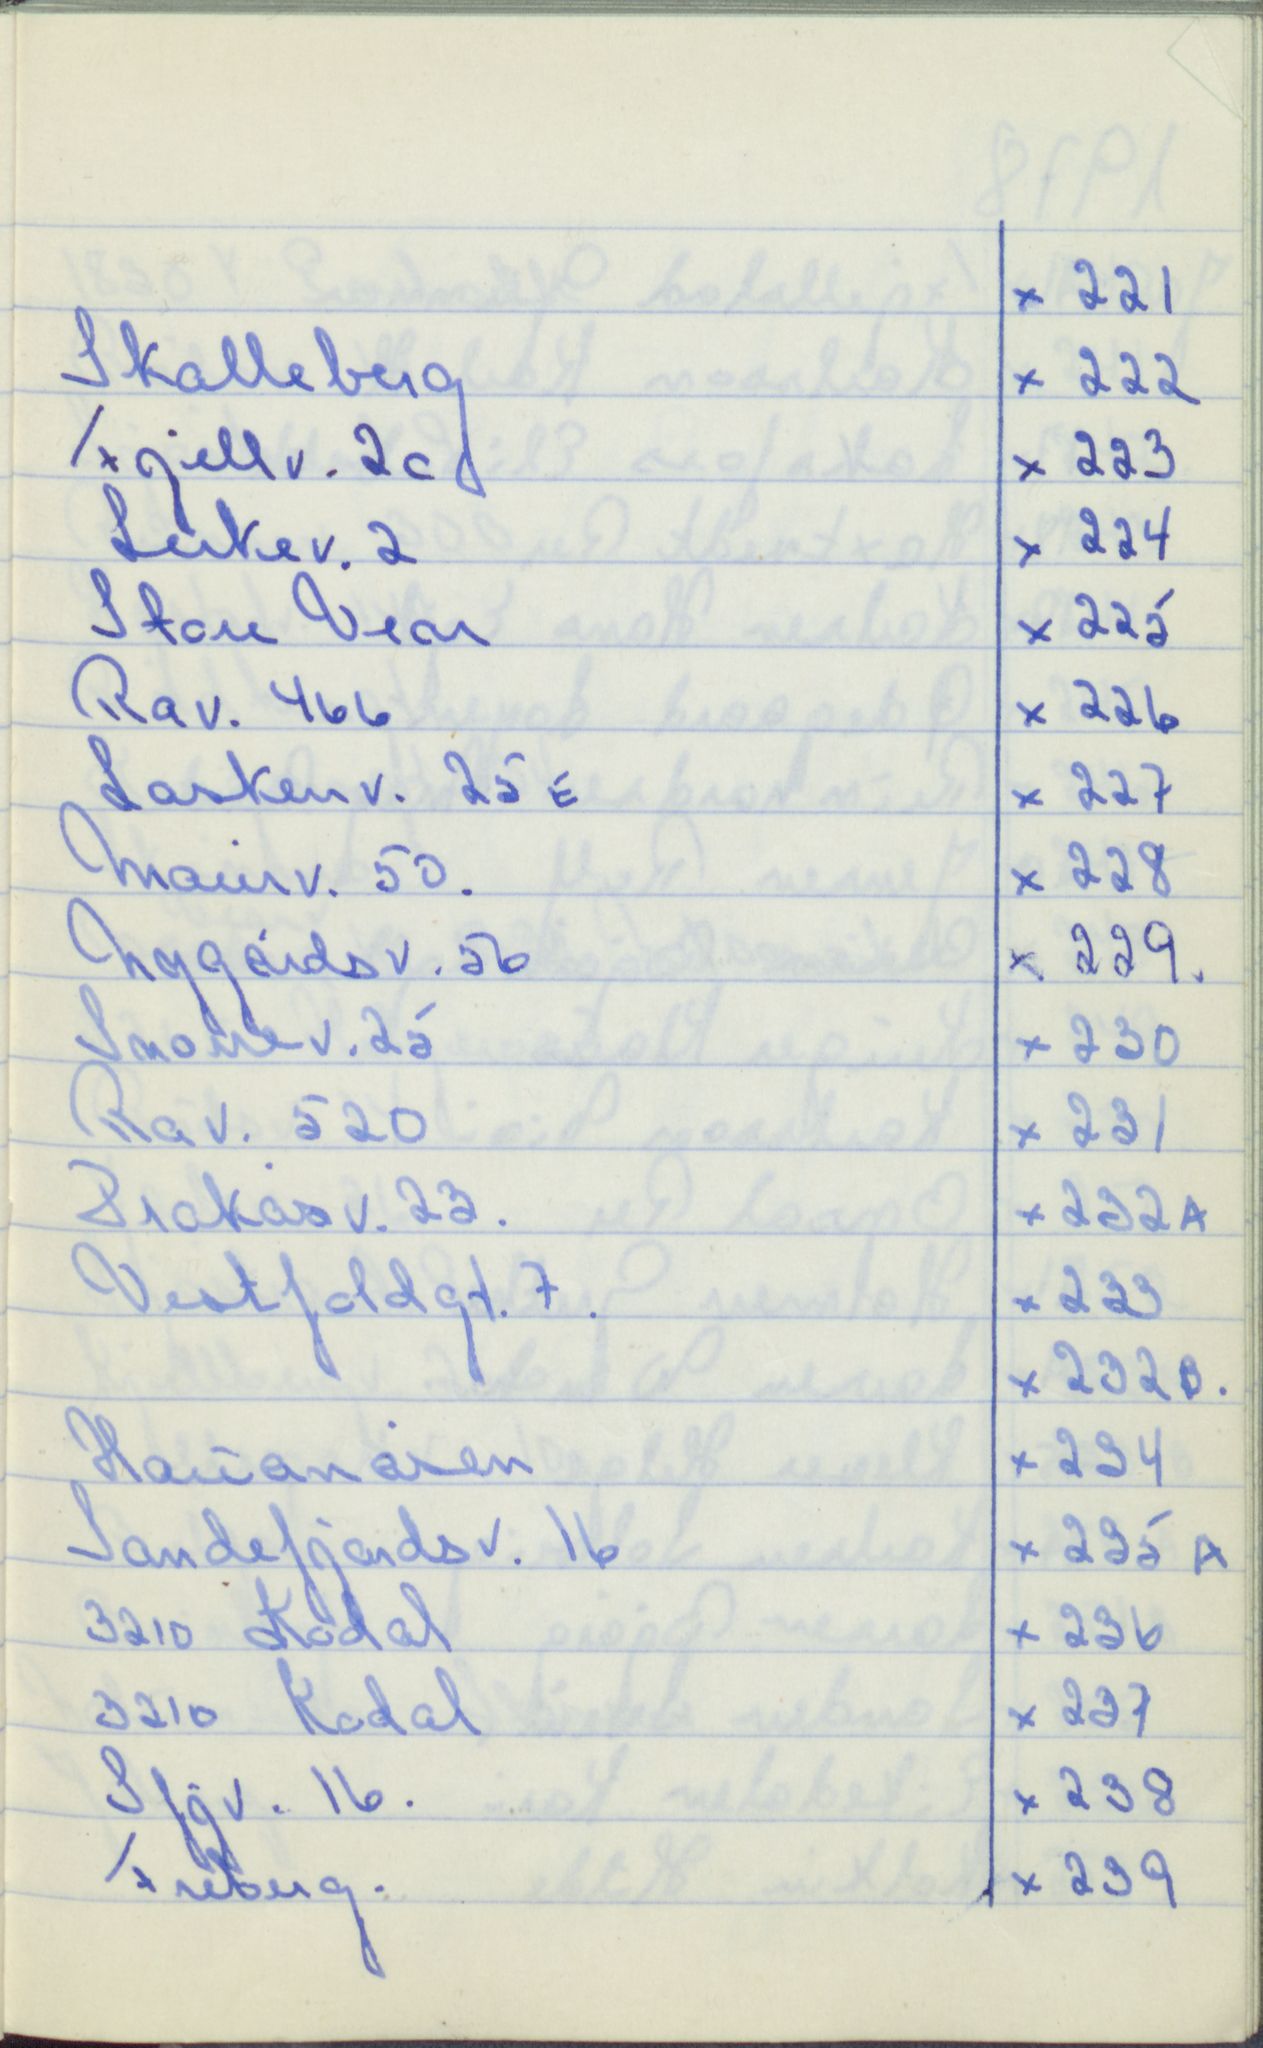 x 221
Skalleberg x 222
Fjellv. 2c x 223
Lerkev. 2 x 224
Store Vear x 225
Rav. 466 x 226
Laskenv. 25 E x 227
Maierv. 50. x 228
Nygårdsv. 56 x 229.
Snorrev. 25 x 230
Rav. 520 x 231
Brekåsv. 23. x 232 A
Vestfoldgt. 7. x 233
x 232 B.
Hauanåsen x 234
Sandefjordsv. 16 x 235 A
3210 Kodal x 236
3210 Kodal x 237
Sfjv. 16. x 238
Freberg. x 239